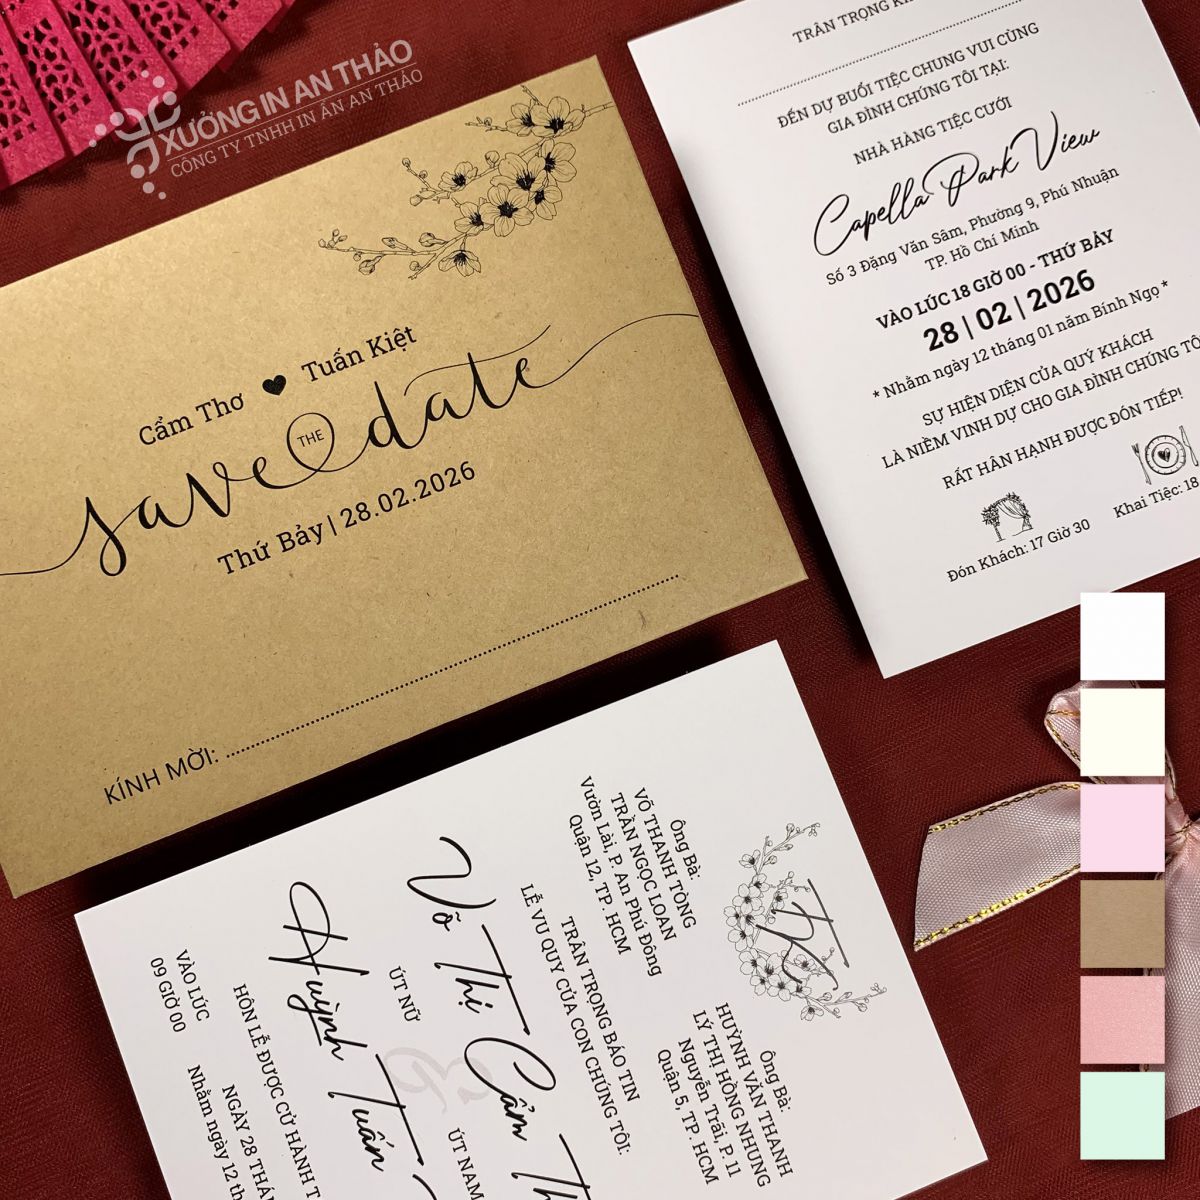 XƯỞNG IN AN THẢO
CÔNG TY TNHH IN ẤN AN THẢO
Cẩm Thơ
Tuấn Kiệt
save THE date
Thứ Bảy | 28.02.2026
KÍNH MỜI:
TRÂN TRỌNG
ĐẾN DỰ BUỔI TIỆC CHUNG VUI CÙNG
GIA ĐÌNH CHÚNG TÔI TẠI:
NHÀ HÀNG TIỆC CƯỚI
Capella Park View
Số 3 Đặng Văn Sâm, Phường 9, Phú Nhuận
TP. Hồ Chí Minh
VÀO LÚC 18 GIỜ 00 - THỨ BẢY
28 | 02 | 2026
* Nhằm ngày 12 tháng 01 năm Bính Ngọ *
SỰ HIỆN DIỆN CỦA QUÝ KHÁCH
LÀ NIỀM VINH DỰ CHO GIA ĐÌNH CHÚNG
RẤT HÂN HẠNH ĐƯỢC ĐÓN TIẾP!
Đón Khách: 17 Giờ 30
Khai Tiệc: 18
Ông Bà:
VÕ THANH TÒNG
TRẦN NGỌC LOAN
Vườn Lài, P. An Phú Đông
Quận 12, TP. HCM
Ông Bà:
HUỲNH VĂN THANH
LÝ THỊ HỒNG NHUNG
Nguyễn Trãi, P. 11
Quận 5, TP. HCM
TRÂN TRỌNG BÁO TIN
LỄ VU QUY CỦA CON CHÚNG TÔI:
Võ Thị Cẩm
ÚT NỮ
&
Huỳnh Tuấn
ÚT NAM
HÔN LỄ ĐƯỢC CỬ HÀNH
VÀO LÚC
09 GIỜ 00
NGÀY 28
Nhằm ngày 12